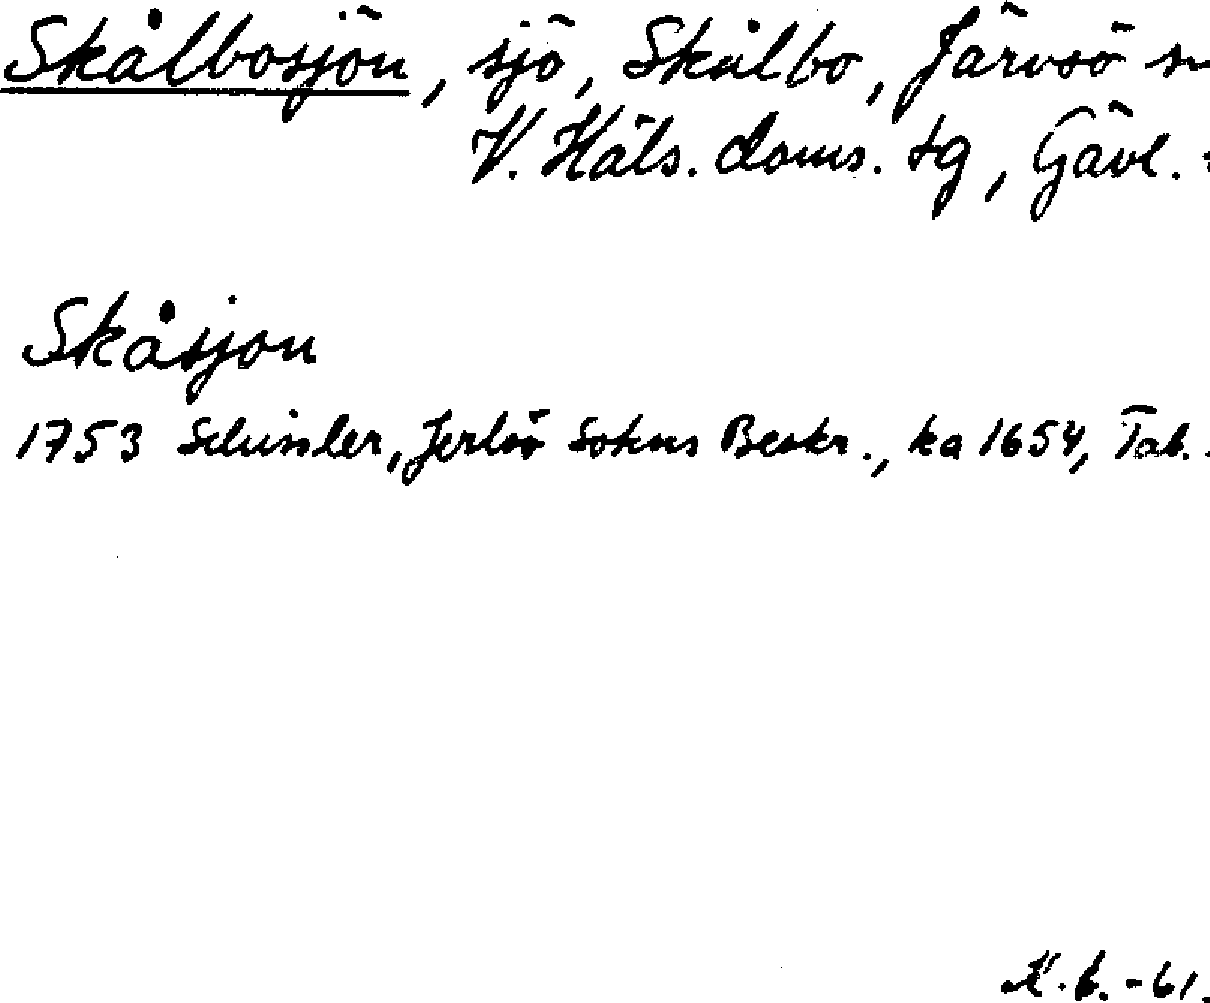 Skålbosjön, sjö, Skålbo, Järvsö sn
V. Häls. doms. tg, Gävl.
Skåsjon
1753 Schissler, Jerlsö Sokns Beskr., ka 1654, Tab.
K.b. -61.